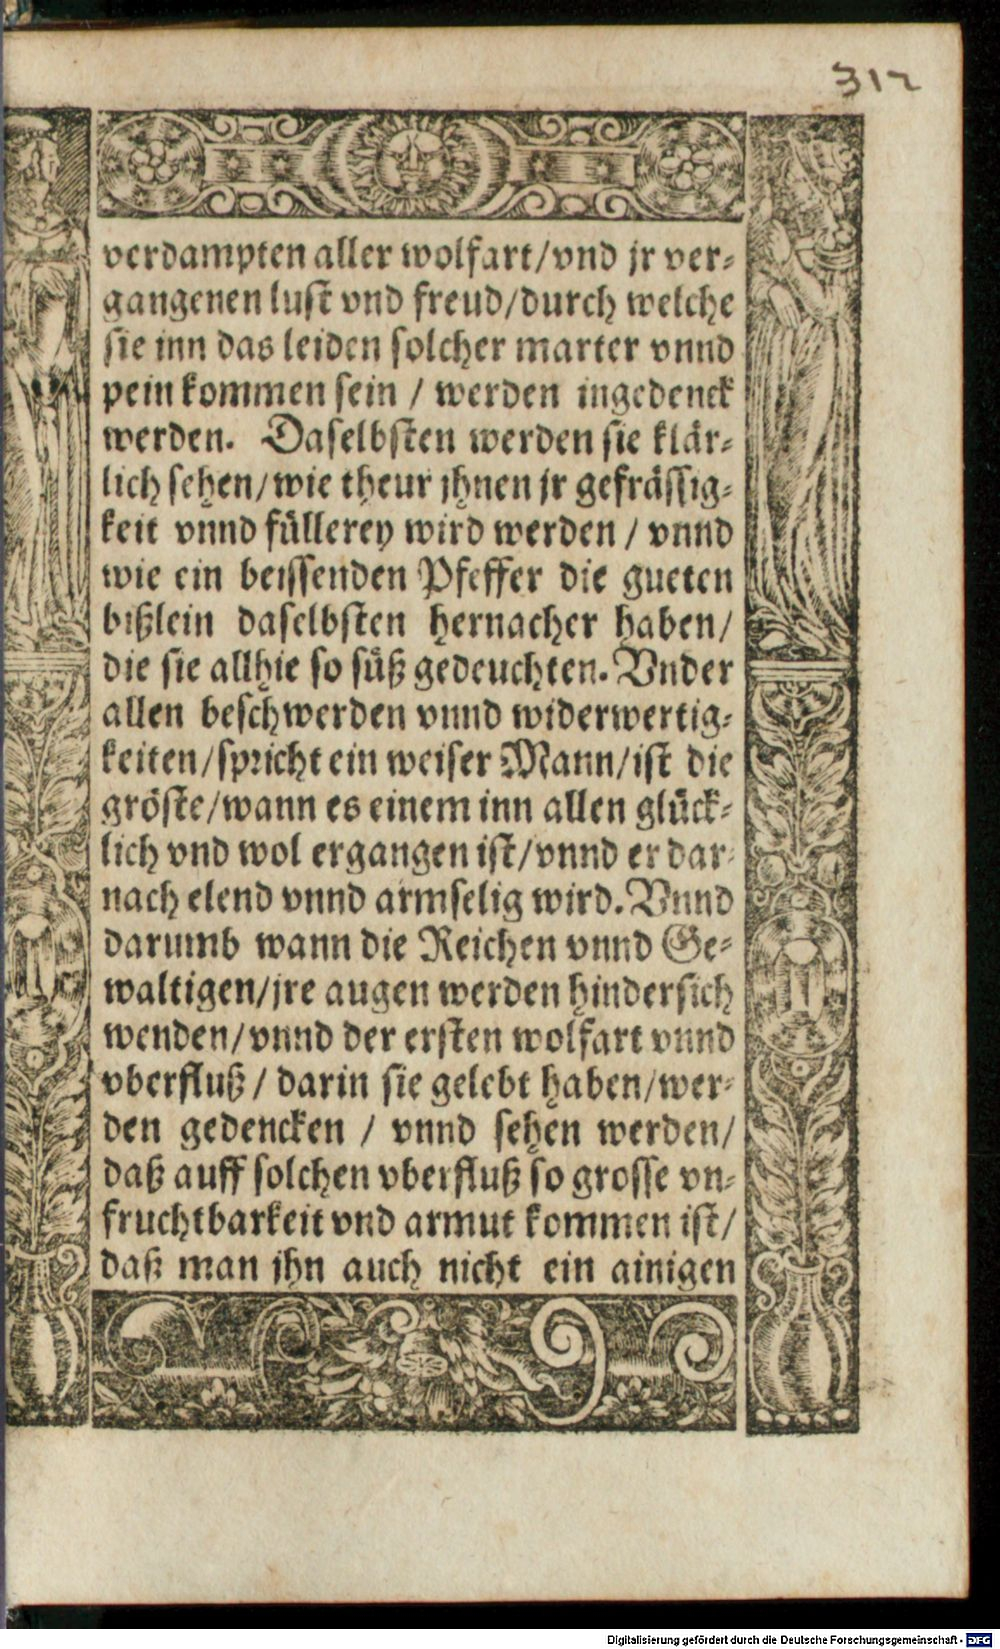 312
verdampten aller wolfart/vnd jr ver-
gangenen lust vnd freud/durch welche
sie inn das leiden solcher marter vnnd
pein kommen sein / werden ingedenck
werden. Daselbsten werden sie klär-
lich sehen/wie theur jhnen jr gefrässig-
keit vnnd füllerey wird werden / vnnd
wie ein beissenden Pfeffer die gueten
bißlein daselbsten hernacher haben/
die sie allhie so süß gedeuchten. Vnder
allen beschwerden vnnd widerwertig-
keiten/spricht ein weiser Mann/ist die
gröste/wann es einem inn allen glück-
lich vnd wol ergangen ist/vnnd er dar-
nach elend vnnd armselig wird. Vnnd
darumb wann die Reichen vnnd Ge-
waltigen/jre augen werden hindersich
wenden/vnnd der ersten wolfart vnnd
vberfluß / darin sie gelebt haben/wer-
den gedencken / vnnd sehen werden/
daß auff solchen vberfluß so grosse vn-
fruchtbarkeit vnd armut kommen ist/
daß man jhn auch nicht ein ainigen
Digitalisierung gefördert durch die Deutsche Forschungsgemeinschaft - DFG